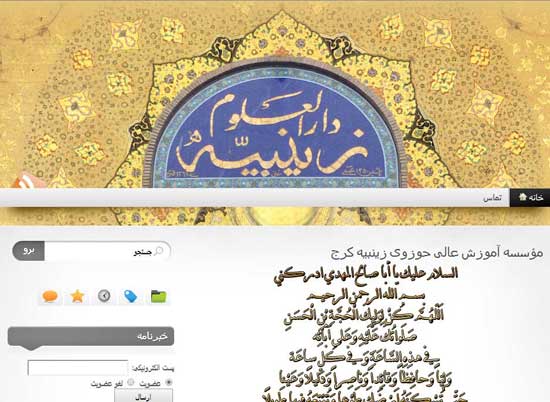 دارالعلوم
زینبیّه
خانه
تماس
مؤسسه آموزش عالی حوزوی زینبیه کرج
جستجو
برو
السلام علیک یا أبا صالح المهدي ادرکني
بسم الله الرحمن الرحیم
اَللّهُمَّ کُنْ لِوَلِیِّکَ الْحُجَّةِ بْنِ الْحَسَنِ
صَلَواتُکَ عَلَیْهِ وَعَلی آبائِهِ
فِي هذِهِ السَّاعَةِ وَفي کُلِّ ساعَة
وَلِیّاً وَحافِظاً وَقائِداً وَناصِراً وَدَلیلاً وَعَیْناً
حَتّی تُسْکِنَهُ أَرْضَکَ طَوْعاً وَتُمَتِّعَهُ فیها طَویلاً
خبرنامه
پست الکترونیک:
عضویت لغو عضویت
ارسال